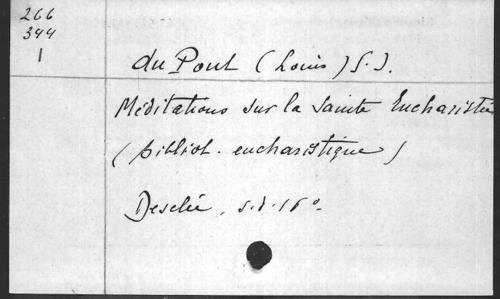 266
344
1
du Pont (Louis) S.J.
Méditations sur la Sainte Eucharistie
(bibliot. eucharistique)
Desclée, s.d. 16°.